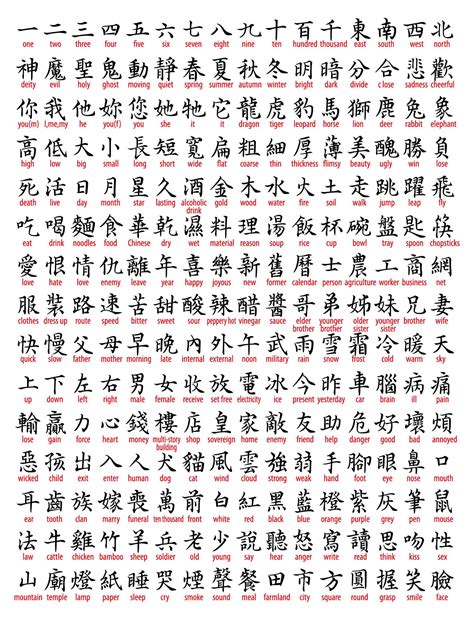 一 二 三 四 五 六 七 八 九 十 百 千 東 南 西 北
one two three four five six seven eight nine ten hundred thousand east south west north
神 魔 聖 鬼 動 靜 春 夏 秋 冬 明 暗 分 合 悲 歡
deity evil holy ghost moving quiet spring summer autumn winter bright dark divide close sadness cheerful
你 我 他 妳 您 她 牠 它 龍 虎 豹 馬 獅 鹿 兔 象
you(m) I,me,my he you(f) you she it it dragon tiger leopard horse lion deer rabbit elephant
高 低 大 小 長 短 寬 扁 粗 細 厚 薄 美 醜 勝 負
high low big small long short wide flat coarse thin thickness flimsy beauty ugly win lose
死 活 日 月 星 久 酒 金 木 水 火 土 走 跳 躍 飛
death live day moon star lasting alcoholic drink gold wood water fire soil walk jump leap fly
吃 喝 麵 食 華 乾 濕 料 理 湯 飯 杯 碗 盤 匙 筷
eat drink noodles food Chinese dry wet material reason soup rice cup bowl tray spoon chopsticks
愛 恨 情 仇 離 年 喜 樂 新 舊 曆 士 農 工 商 網
love hate love enemy leave year happy joyous new former calendar person agriculture worker business net
服 裝 路 速 苦 甜 酸 辣 醋 醬 哥 弟 姊 妹 兄 妻
clothes dress up route speed bitter sweet sour peppery hot vinegar sauce elder brother younger brother elder sister younger sister elder brother wife
快 慢 父 母 早 晚 內 外 午 武 雨 雪 霜 冷 暖 天
quick slow father mother morning late internal external noon military rain snow frost cold warm sky
上 下 左 右 男 女 收 放 電 冰 今 昨 車 腦 病 痛
up down left right male female receive set free electricity ice present yesterday car brain ill pain
輸 贏 力 心 錢 樓 店 皇 家 敵 友 助 危 好 壞 煩
lose gain force heart money multi-story building shop sovereign home enemy friend help danger good bad annoyed
惡 孩 出 入 人 犬 貓 風 雲 強 弱 手 腳 眼 鼻 口
wicked child exit enter human dog cat wind cloud strong weak hand foot eye nose mouth
耳 齒 族 嫁 喪 萬 前 白 紅 黑 藍 橙 紫 灰 筆 鼠
ear tooth clan marry funeral ten thousand front white red black blue orange purple grey pen mouse
法 牛 雞 竹 羊 兵 老 少 說 聽 怒 寫 讀 思 吻 性
law cattle chicken bamboo sheep soldier old young say hear anger write read think kiss sex
山 廟 燈 紙 睡 哭 煙 聲 餐 田 市 方 圓 握 笑 臉
mountain temple lamp paper sleep cry smoke sound meal farmland city square round grasp smile face